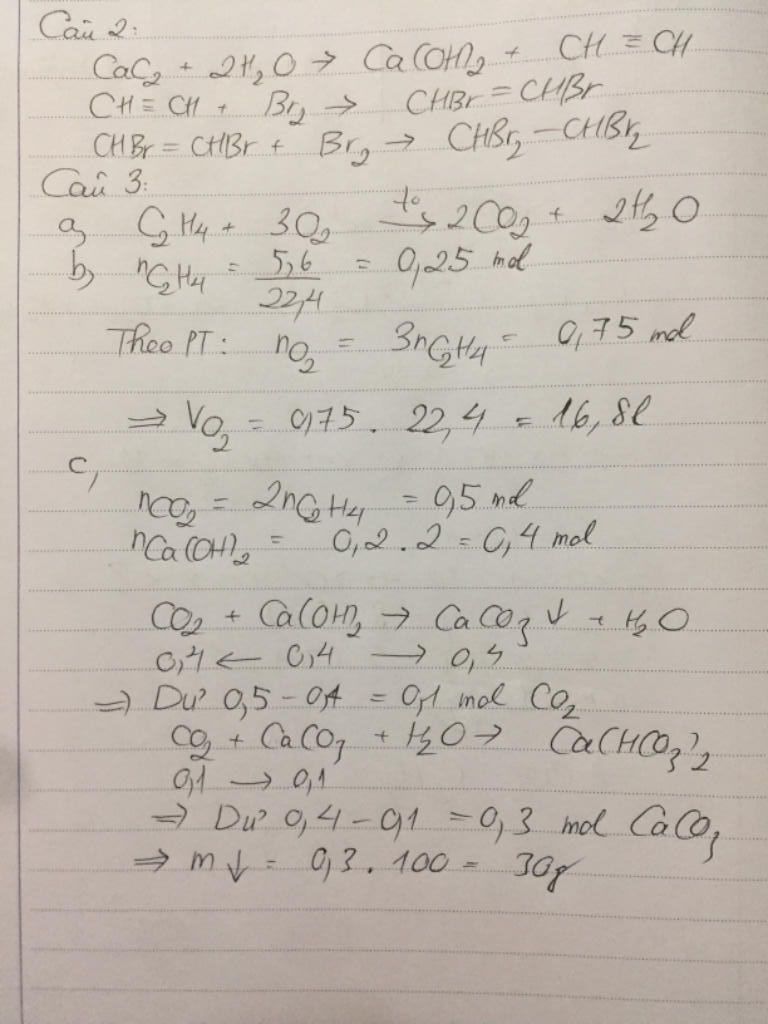 Câu 2:
CaC₂ + 2H₂O → Ca(OH)₂ + CH ≡ CH
CH ≡ CH + Br₂ → CHBr = CHBr
CHBr = CHBr + Br₂ → CHBr₂ – CHBr₂
Câu 3:
a, C₂H₄ + 3O₂ →(t°) 2CO₂ + 2H₂O
b, nC₂H₄ = 5,6/22,4 = 0,25 mol
Theo PT: nO₂ = 3nC₂H₄ = 0,75 mol
⇒ VO₂ = 0,75 . 22,4 = 16,8l
c,
nCO₂ = 2nC₂H₄ = 0,5 mol
nCa(OH)₂ = 0,2 . 2 = 0,4 mol
CO₂ + Ca(OH)₂ → CaCO₃ ↓ + H₂O
0,4 ← 0,4 → 0,4
⇒ Dư 0,5 – 0,4 = 0,1 mol CO₂
CO₂ + CaCO₃ + H₂O → Ca(HCO₃)₂
0,1 → 0,1
⇒ Dư 0,4 – 0,1 = 0,3 mol CaCO₃
⇒ m↓ = 0,3 . 100 = 30g